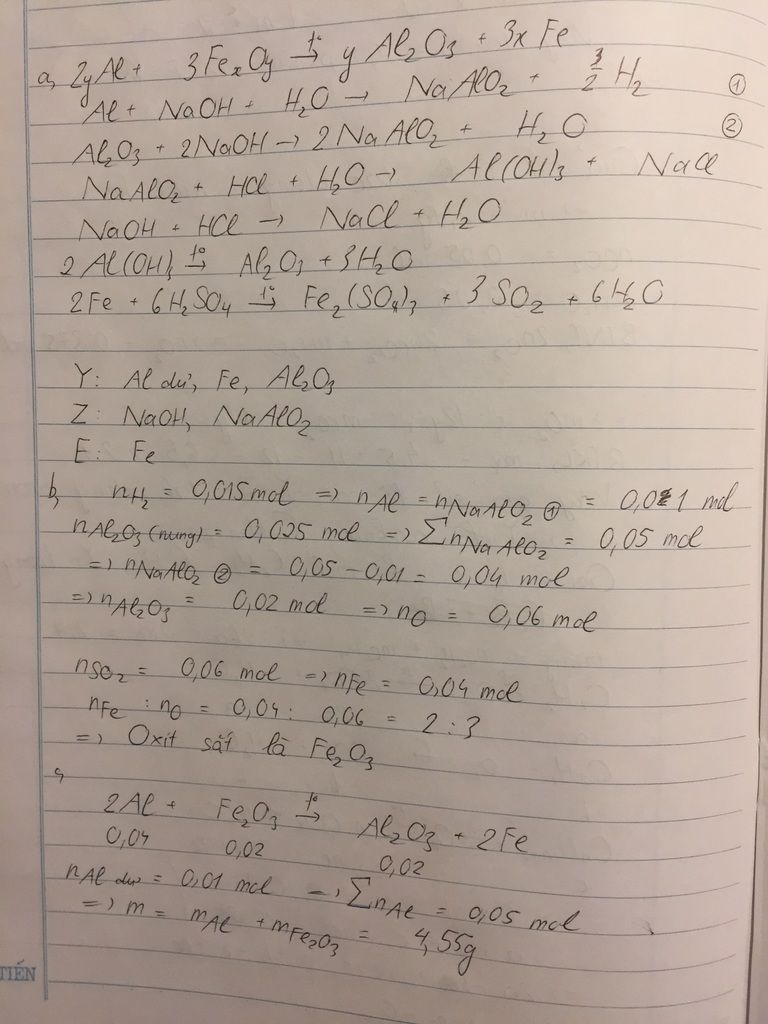 a, 2yAl + 3FexOy t°→ y Al₂O₃ + 3x Fe
Al + NaOH + H₂O → NaAlO₂ + 3/2 H₂ ①
Al₂O₃ + 2NaOH → 2NaAlO₂ + H₂O ②
NaAlO₂ + HCl + H₂O → Al(OH)₃ + NaCl
NaOH + HCl → NaCl + H₂O
2Al(OH)₃ t°→ Al₂O₃ + 3H₂O
2Fe + 6H₂SO₄ t°→ Fe₂(SO₄)₃ + 3SO₂ + 6H₂O
Y: Al dư, Fe, Al₂O₃
Z: NaOH, NaAlO₂
E: Fe
b, nH₂ = 0,015 mol => nAl = nNaAlO₂ ① = 0,01 mol
nAl₂O₃ (nung) = 0,025 mol => ΣnNaAlO₂ = 0,05 mol
=> nNaAlO₂ ② = 0,05 - 0,01 = 0,04 mol
=> nAl₂O₃ = 0,02 mol => nO = 0,06 mol
nSO₂ = 0,06 mol => nFe = 0,04 mol
nFe : nO = 0,04 : 0,06 = 2 : 3
=> Oxit sắt là Fe₂O₃
c,
2Al + Fe₂O₃ t°→ Al₂O₃ + 2Fe
0,04 0,02 0,02
nAl dư = 0,01 mol => ΣnAl = 0,05 mol
=> m = mAl + mFe₂O₃ = 4,55g
TIẾN